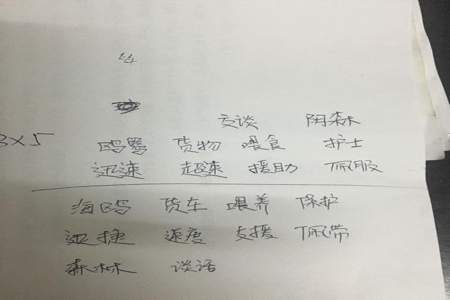 交谈 阴森
3×5 鸥鹭 货物 喂食 护士
迅速 起速 援助 佩服
海鸥 货车 喂养 保护
迅捷 速度 支援 佩带
森林 谈话